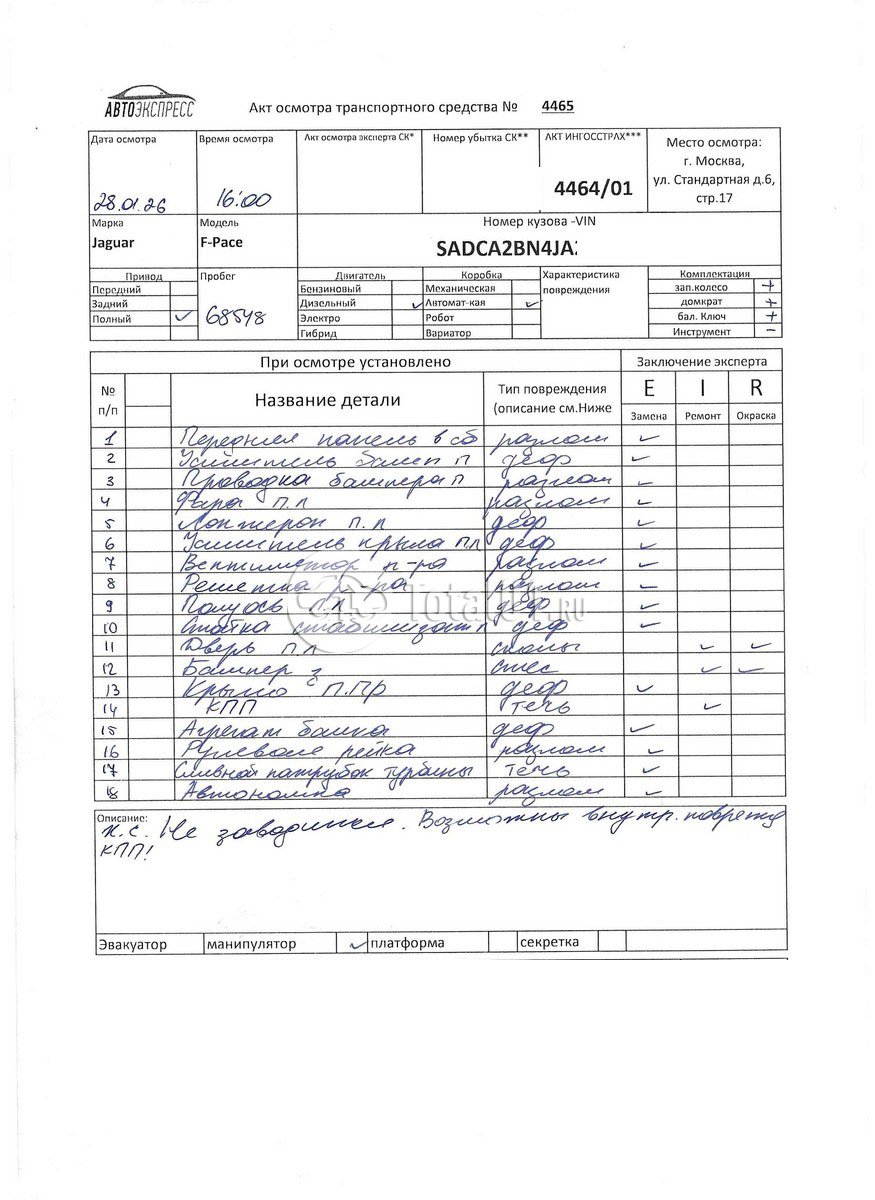 АВТОЭКСПРЕСС
Акт осмотра транспортного средства № 4465
Дата осмотра Время осмотра Акт осмотра эксперта СК* Номер убытка СК** АКТ ИНГОССТРАХ*** Место осмотра:
г. Москва,
ул. Стандартная д.6,
стр.17
28.01.26 16:00 4464/01
Марка Модель Номер кузова -VIN
Jaguar F-Pace SADCA2BN4JA
Привод Пробег Двигатель Коробка Характеристика повреждения Комплектация
Передний Бензиновый Механическая зап.колесо +
Задний Дизельный ✓ Автомат-кая ✓ домкрат +
Полный ✓ 68548 Электро Робот бал. Ключ +
Гибрид Вариатор Инструмент -
При осмотре установлено Заключение эксперта
№ п/п Название детали Тип повреждения (описание см.Ниже E I R
Замена Ремонт Окраска
1 Передняя панель в сб разлом ✓
2 Усилитель бамп п деф ✓
3 Проводка бампера п разлом ✓
4 Фара п.л разлом ✓
5 Лонжерон п.л деф ✓
6 Усилитель крыла пл деф ✓
7 Вентилятор р-ра разлом ✓
8 Решетка р-ра разлом ✓
9 Полуось п.л деф ✓
10 Стойка стабилизат п деф ✓
11 Дверь п л сколы ✓ ✓
12 Бампер з стес ✓ ✓
13 Крыло п.пр деф ✓
14 КПП течь ✓
15 Агрегат бачка деф ✓
16 Рулевая рейка разлом ✓
17 Сливной патрубок турбины течь ✓
18 Автономка разлом ✓
TotalUP.RU
Описание:
Н.С. Не заводится. Возможны внутр. поврежд
КПП!
Эвакуатор манипулятор ✓ платформа секретка